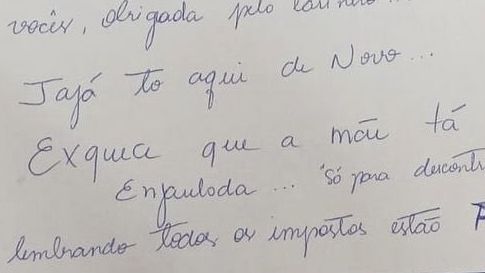 vocês, obrigada pelo carinho...
Jajá to aqui de Novo...
Exquce que a mãe tá
Enjauloda... só para descont
lembrando todos os impostos estão P